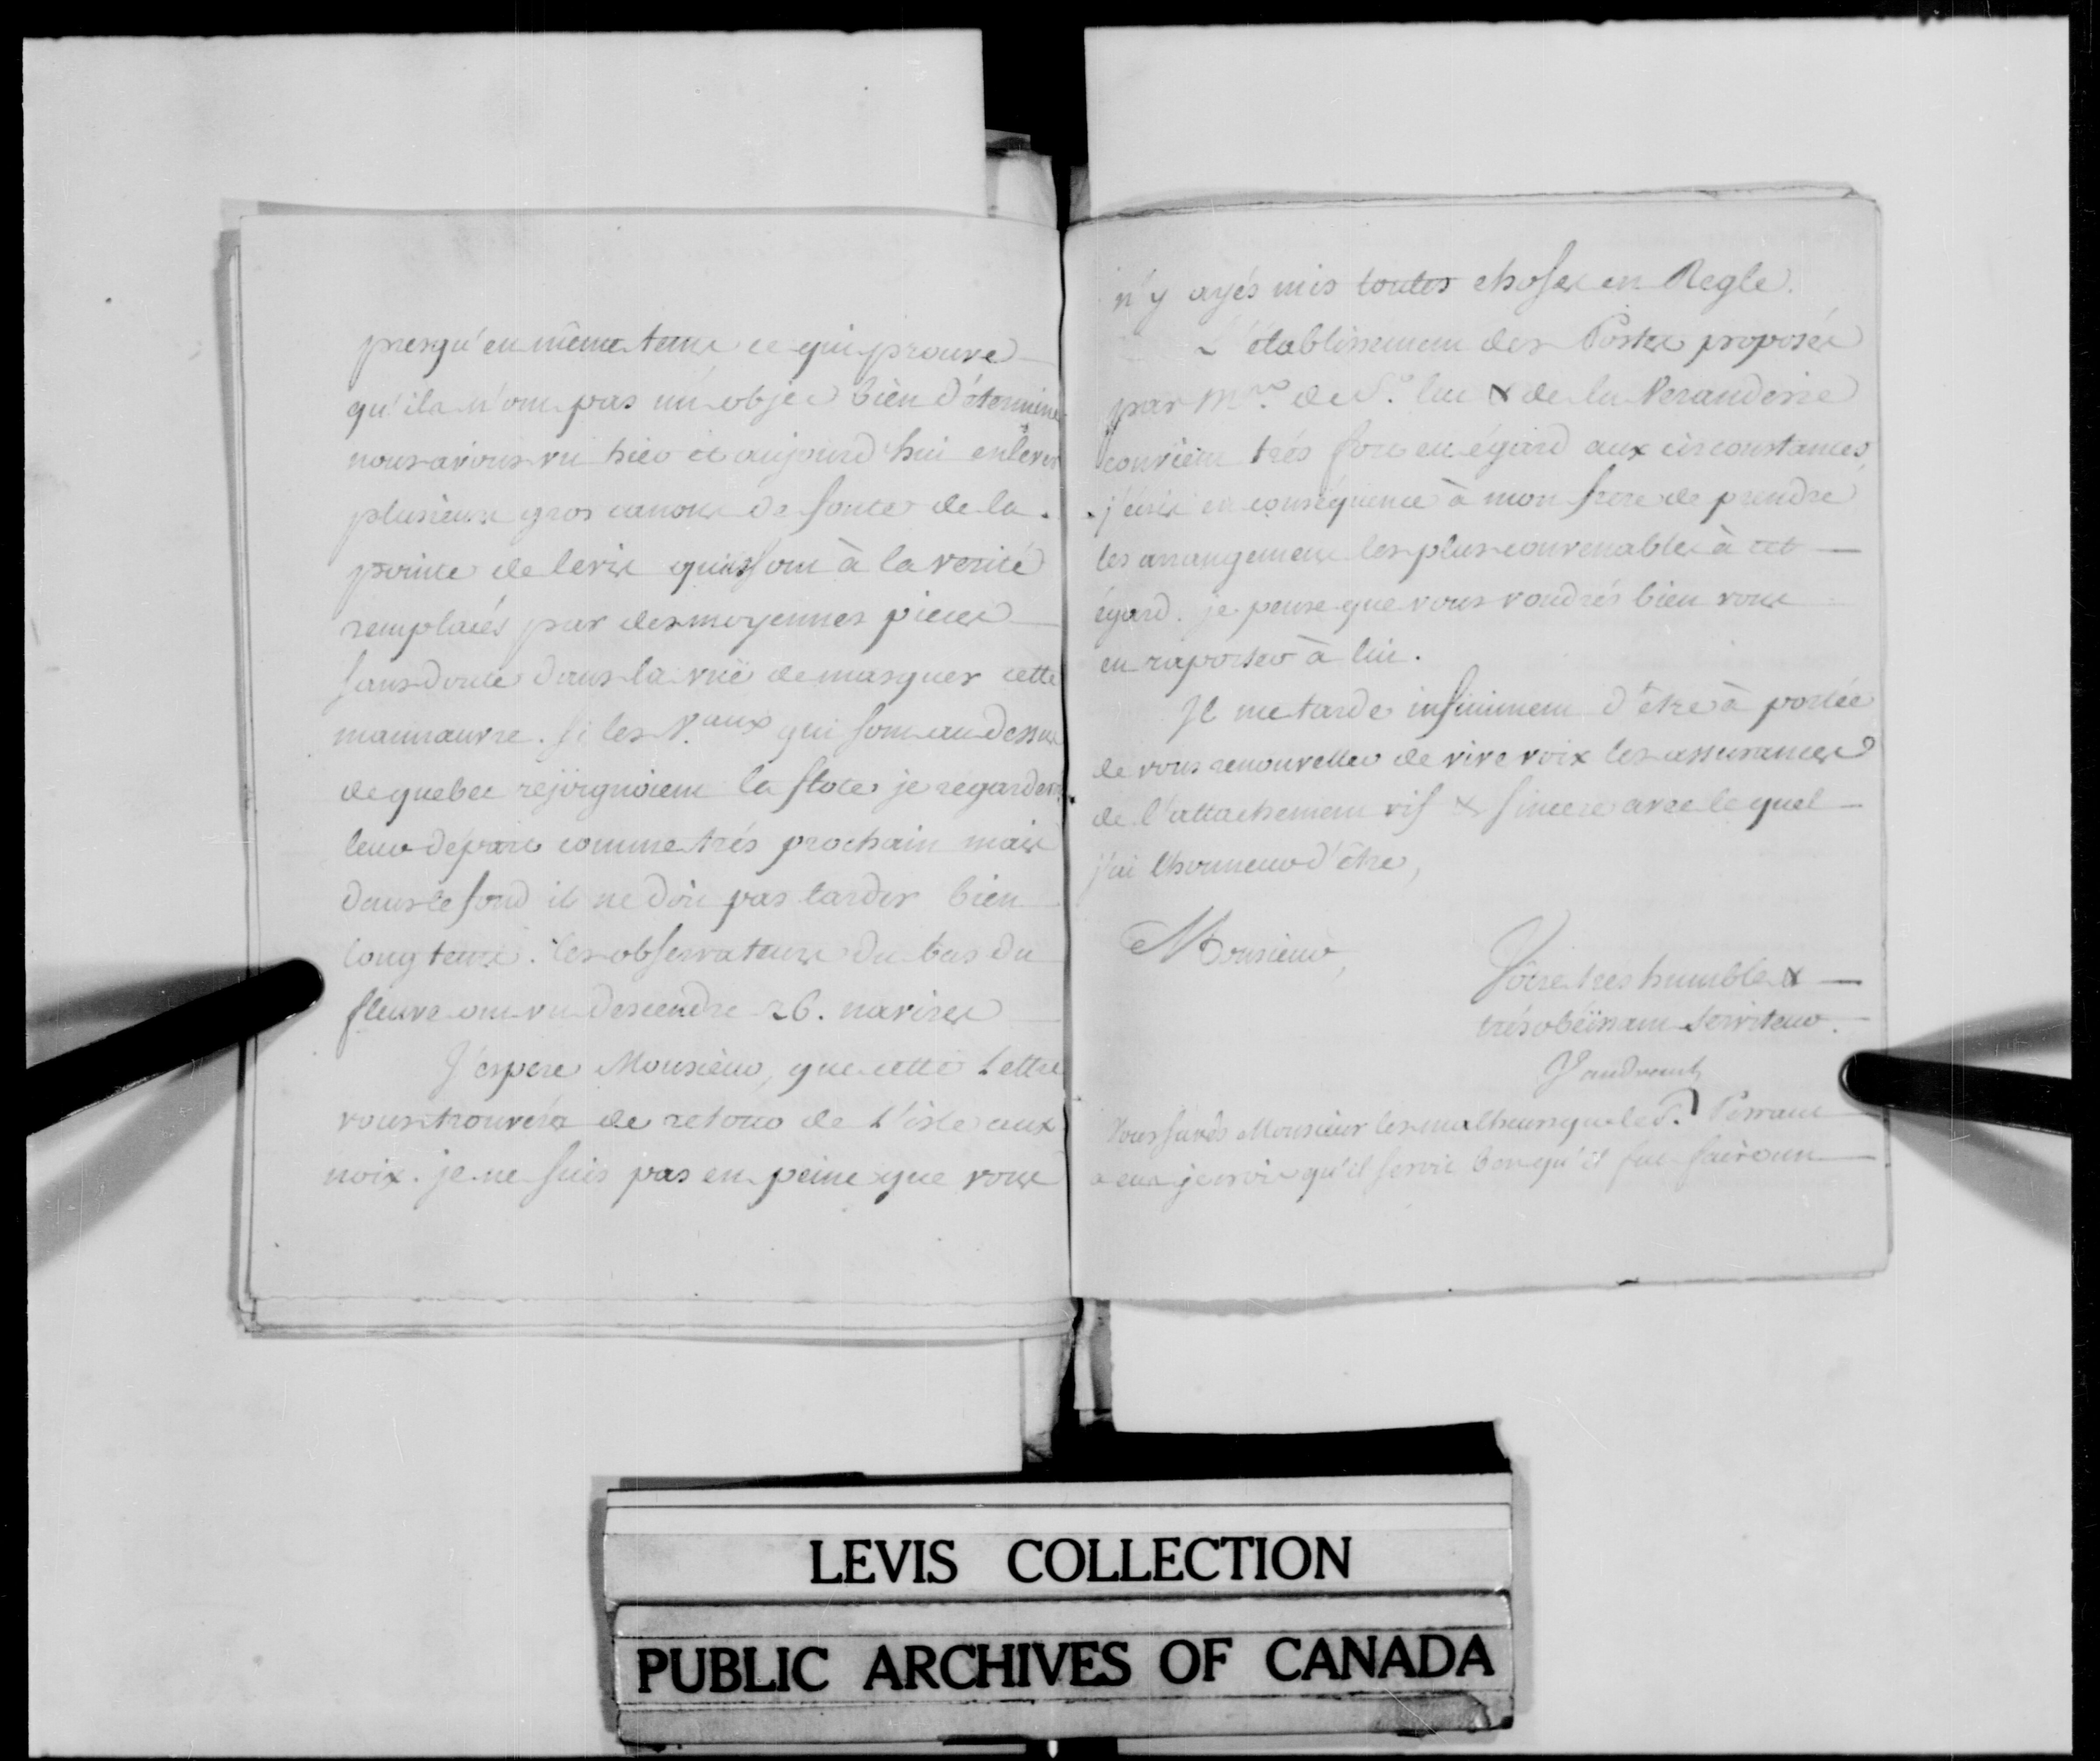 presqu'en même tems ce qui prouve
qu'ils n'ont pas un objet bien détermine
nous avons vu hier et aujourd'hui enlever
plusieurs gros canons de fonte de la
pointe de levis qui sont à la verité
remplacés par des moyennes pieces
sans doute dans la vuë de masquer cette
manœuvre. si les V.aux qui sont au dessus
de quebec rejoignoient la flote je regarderois
leur départ comme trés prochain mais
dans le fond il ne doit pas tarder bien
long tems. les observateurs du bas du
fleuve ont vu descendre 26. navires
J'espere Monsieur, que cette Lettre
vous trouvera de retour de L'isle aux
noix. je ne suis pas en peine que vous
n'y ayés mis toutes choses en Regle.
L'établissement des Postes proposés
par Mrs. de St. luc & de la Veranderie
convient trés fort eu égard aux circonstances
j'écris en conséquence à mon frere de prendre
les arrangemens les plus convenables à cet
égard. je pense que vous voudrés bien vous
en raporter à lui.
Il me tarde infiniment d'être à portée
de vous renouveller de vive voix les assurances
de l'attachement vif & sincere avec le quel
j'ai l'honneur d'être,
Monsieur,
Vôtre tres humble &
trés obéissant serviteur.
Vaudreuil
Vous savés Monsieur les malheurs que le S.
a eus je crois qu'il seroit bon qu'il fut
LEVIS COLLECTION
PUBLIC ARCHIVES OF CANADA